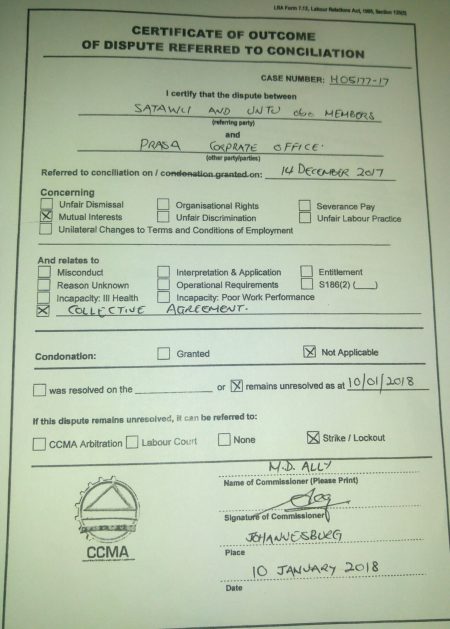 LRA Form 7.12, Labour Relations Act, 1995, Section 135(5)
CERTIFICATE OF OUTCOME
OF DISPUTE REFERRED TO CONCILIATION
CASE NUMBER: HO5177-17
I certify that the dispute between
SATAWU AND UNTU obo MEMBERS
(referring party)
and
PRASA CORPRATE OFFICE.
(other party/parties)
Referred to conciliation on / condonation granted on: 14 DECEMBER 2017
Concerning
Unfair Dismissal Organisational Rights Severance Pay
Mutual Interests Unfair Discrimination Unfair Labour Practice
Unilateral Changes to Terms and Conditions of Employment
And relates to
Misconduct Interpretation & Application Entitlement
Reason Unknown Operational Requirements S186(2) (___)
Incapacity: Ill Health Incapacity: Poor Work Performance
COLLECTIVE AGREEMENT.
Condonation: Granted Not Applicable
was resolved on the ____________ or remains unresolved as at 10/01/2018
If this dispute remains unresolved, it can be referred to:
CCMA Arbitration Labour Court None Strike / Lockout
M.D. ALLY
Name of Commissioner (Please Print)
Signature of Commissioner
JOHANNESBURG
Place
CCMA
10 JANUARY 2018
Date